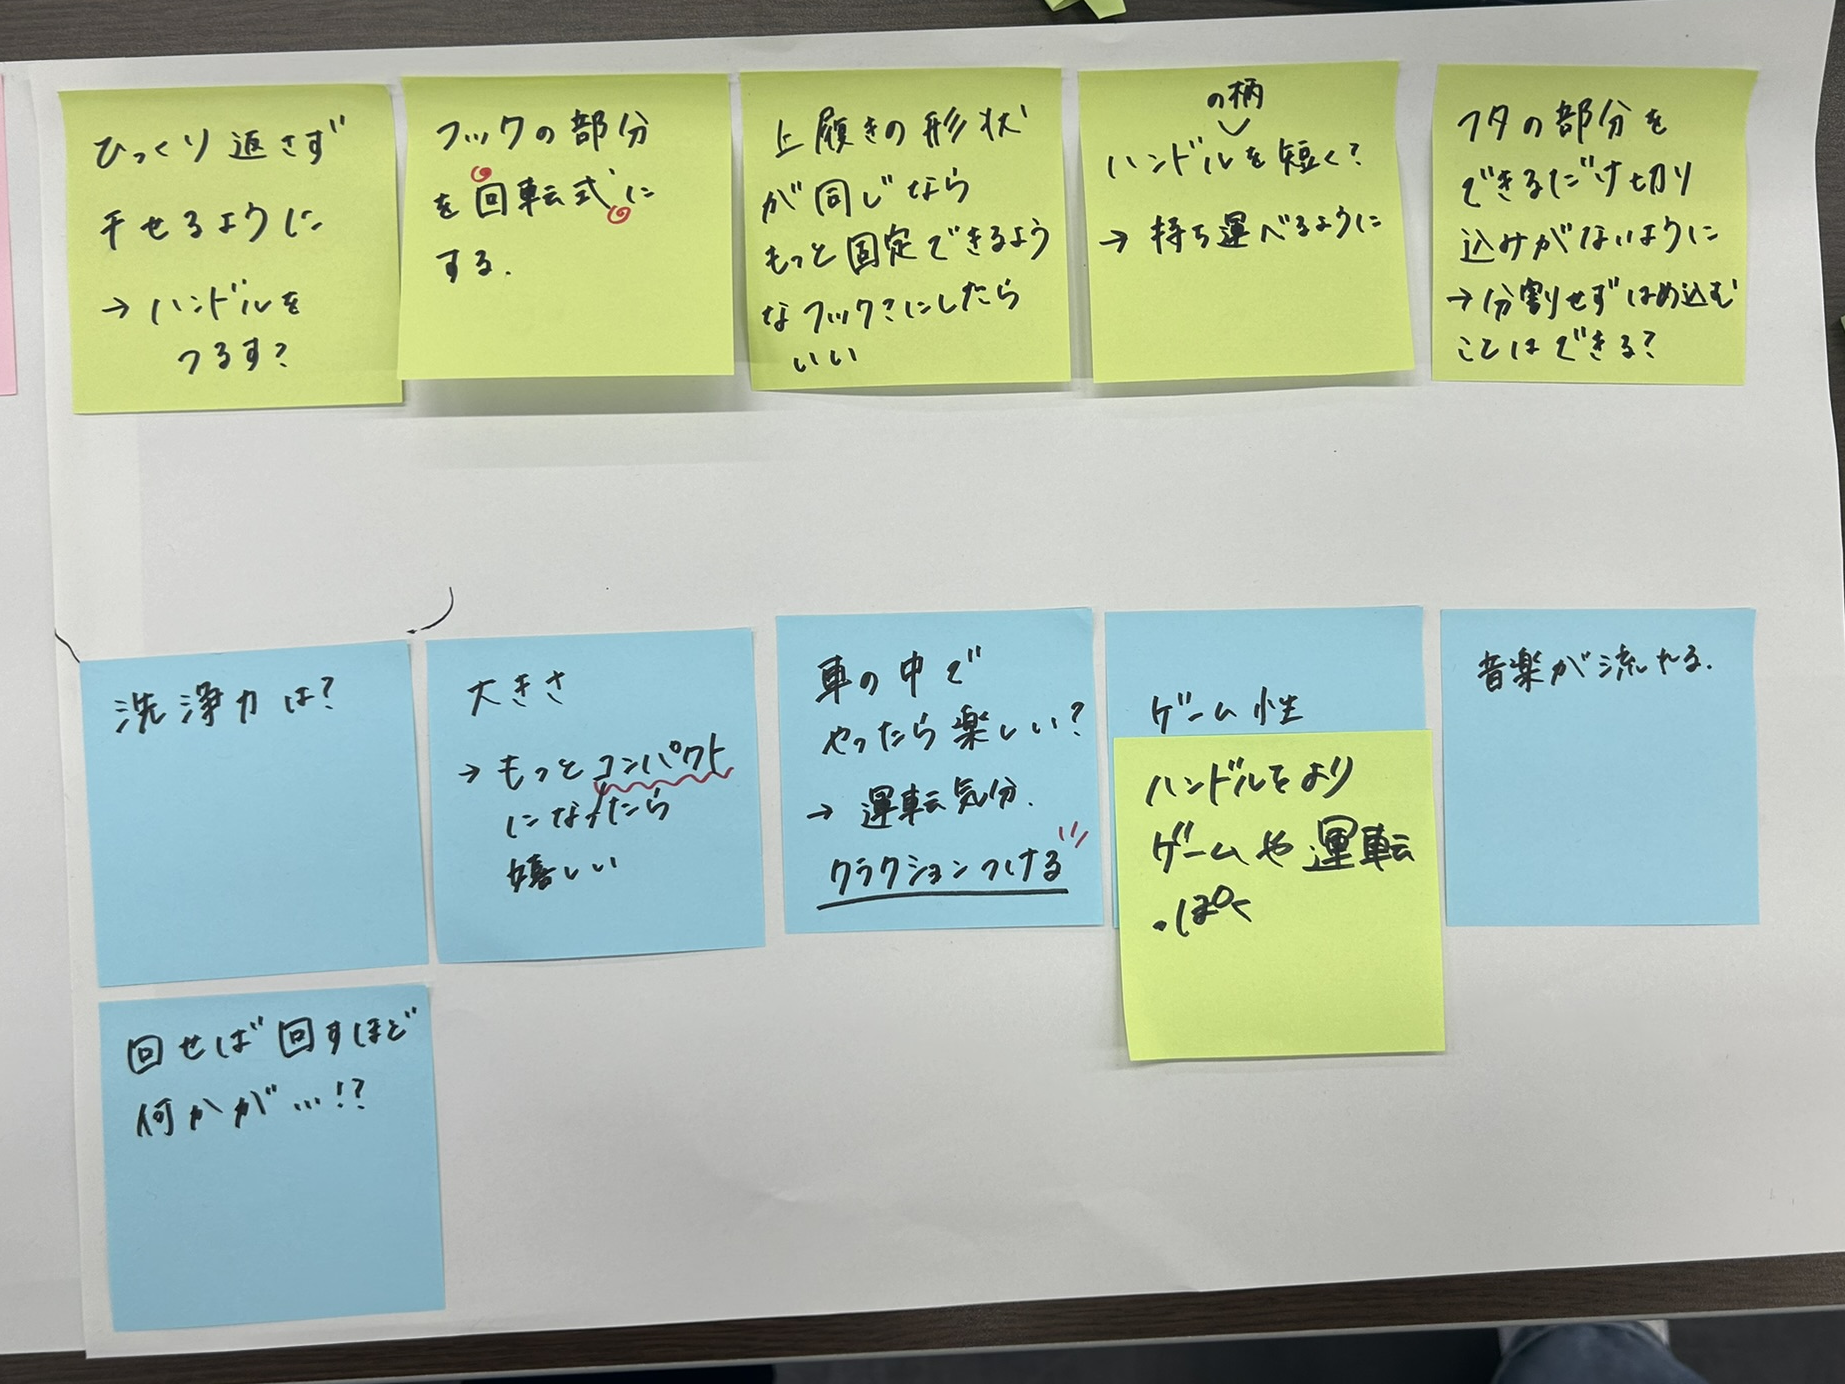 ひっくり返さず
干せるように
→ ハンドルを
つるす?
フックの部分
を回転式に
する.
上履きの形状
が同じなら
もっと固定できるよう
なフック?にしたら
いい
の柄
ハンドルを短く?
→ 持ち運べるように
フタの部分を
できるだけ切り
込みがないように
→分割せずはめ込む
ことはできる?
洗浄力は?
大きさ
→ もっとコンパクト
になったら
嬉しい
車の中で
やったら楽しい?
→ 運転気分.
クラクションつける
ゲーム性
ハンドルをより
ゲームや運転
っぽく
音楽が流れる.
回せば回すほど
何かが…!?